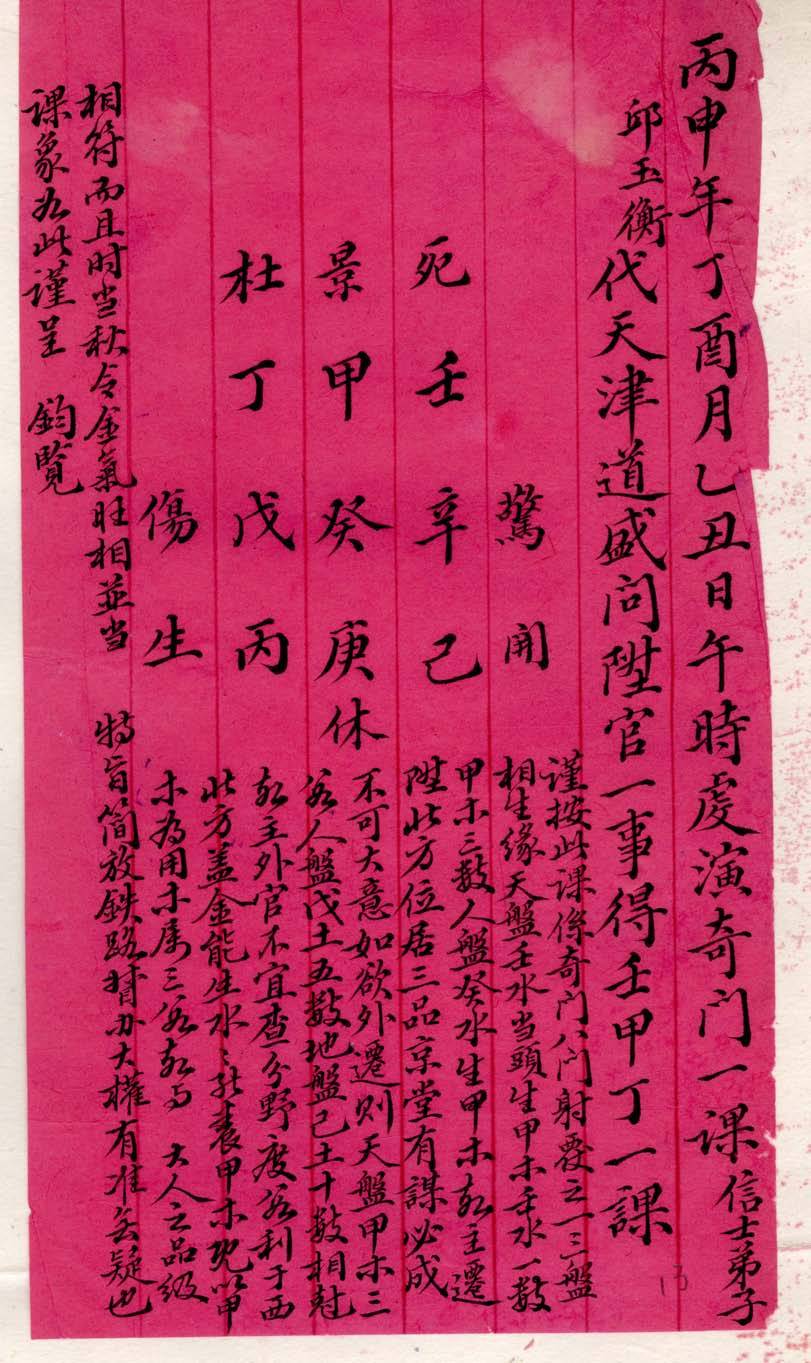 丙申年丁酉月乙丑日午時虔演奇门一课信士弟子
邱玉衡代天津道盛问陞官一事得壬甲丁一課
驚 開
死 壬 辛 己
景 甲 癸 庚 休
杜 丁 戊 丙
傷 生
谨按此课係奇门八门射覆之一三盤
相生缘天盤壬水当頭生甲木壬水一数
甲木三数人盤癸水生甲木故主遷
陞此方位居三品京堂有謀必成
不可大意如欲外遷则天盤甲木三
数人盤戊土五数地盤己土十数相尅
故主外官不宜查分野度数利于西
北方盖金能生水水能养甲木况以甲
木为用木属三数故与 大人之品級
相符而且时当秋令金氣旺相並当 特旨简放鉄路督办大權有准無疑也
课象如此谨呈 鈞覧
13